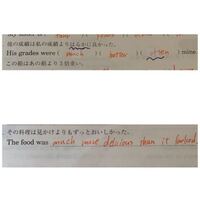 彼の成績は私の成績よりはるかに良かった。
His grades were ( much ) ( better ) ( then ) mine.
この船はあの船より3倍重い。
その料理は見かけよりもずっとおいしかった。
The food was much more delicious than it looked.